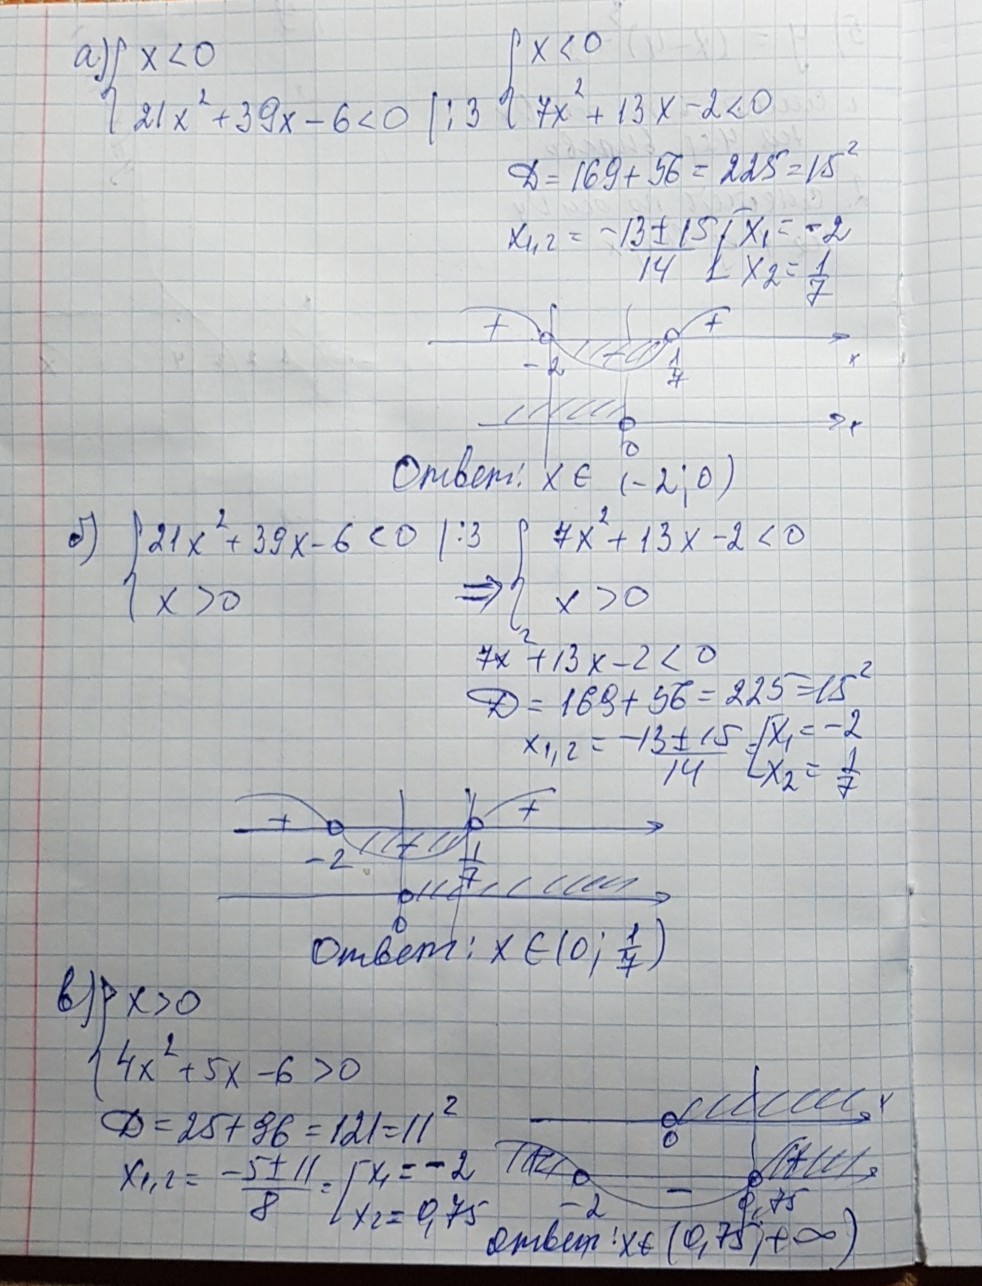 а) { x < 0
{ 21x² + 39x - 6 < 0 | : 3
{ x < 0
{ 7x² + 13x - 2 < 0
D = 169 + 56 = 225 = 15²
x₁,₂ = (-13 ± 15)/14 [ x₁ = -2
[ x₂ = 1/7
+ - +
-2 1/7 x
0 x
Ответ: x ∈ (-2; 0)
б) { 21x² + 39x - 6 < 0 | : 3
{ x > 0
⇒ { 7x² + 13x - 2 < 0
{ x > 0
7x² + 13x - 2 < 0
D = 169 + 56 = 225 = 15²
x₁,₂ = (-13 ± 15)/14 = [ x₁ = -2
[ x₂ = 1/7
+ - +
-2 1/7
0
Ответ: x ∈ (0; 1/7)
в) { x > 0
{ 4x² + 5x - 6 > 0
D = 25 + 96 = 121 = 11²
x₁,₂ = (-5 ± 11)/8 = [ x₁ = -2
[ x₂ = 0,75
0 x
- +
-2 0,75
Ответ: x ∈ (0,75; +∞)